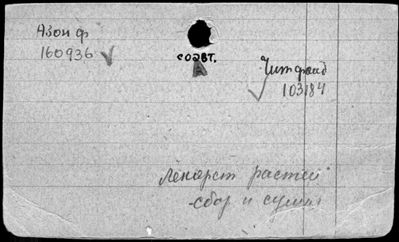 Азои ф
160936
соавт.
А
Чит фонд
103184
Лекарст растен
сбор и сушка